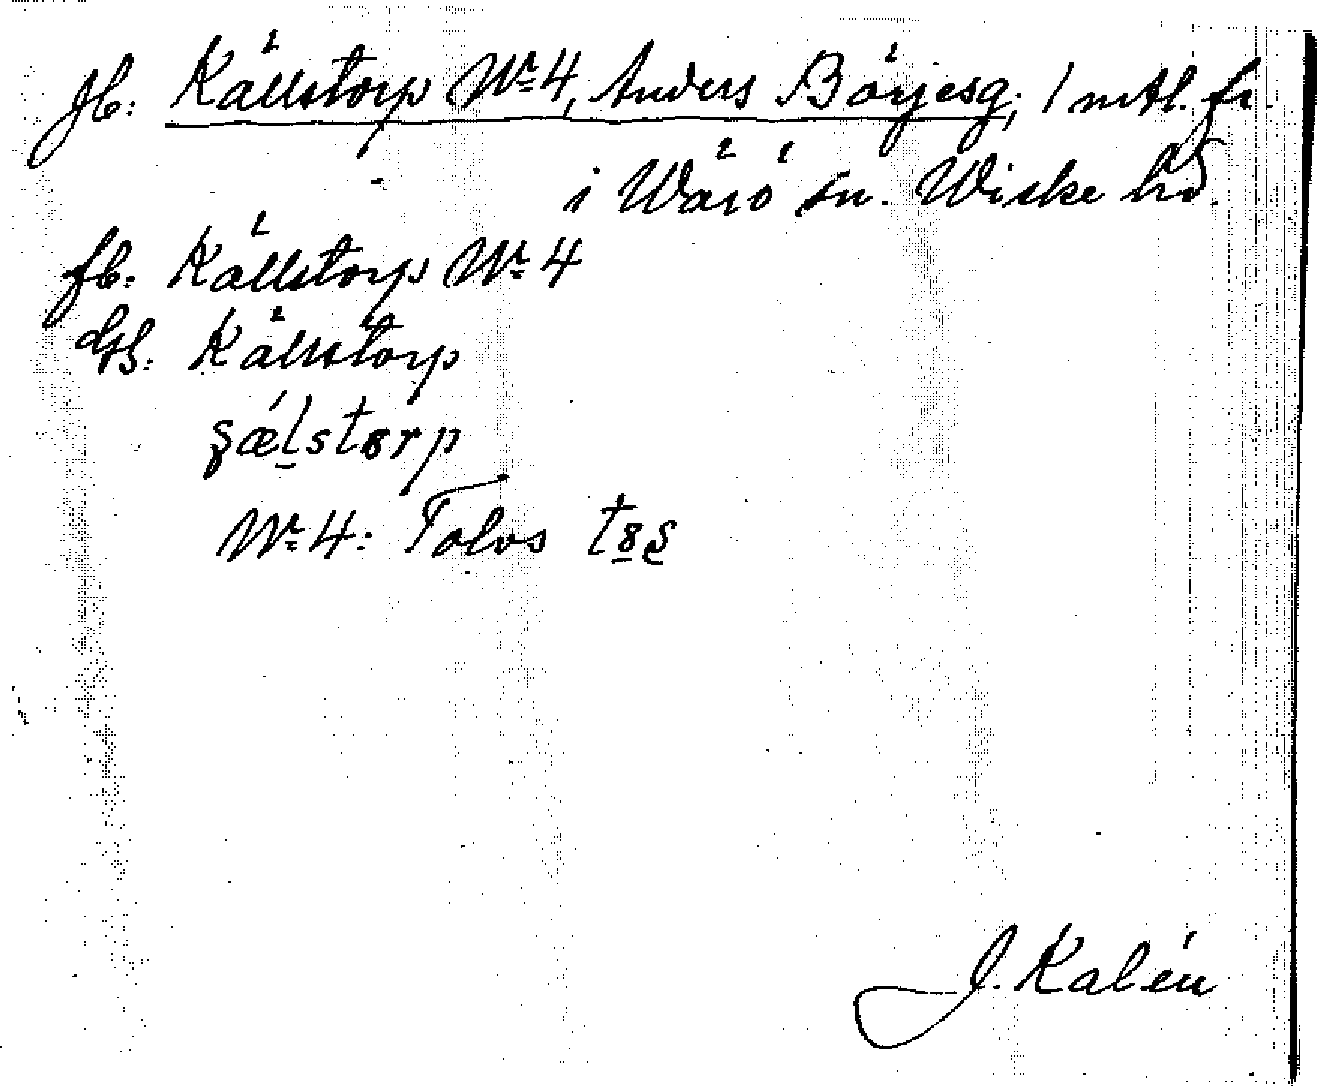 Jb: Källstorp Nr 4, Anders Börjesg; 1 mtl. fr.
i Wärö sn. Wiske hd.
fb: Källstorp Nr 4
GS: Källstorp
ʂǽlstɵrp
Nr 4: Tolvs tɞʂ
J. Kalén